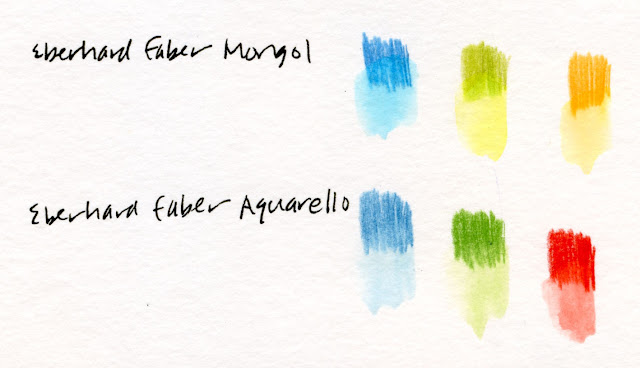 Eberhard Faber Mongol
Eberhard Faber Aquarello